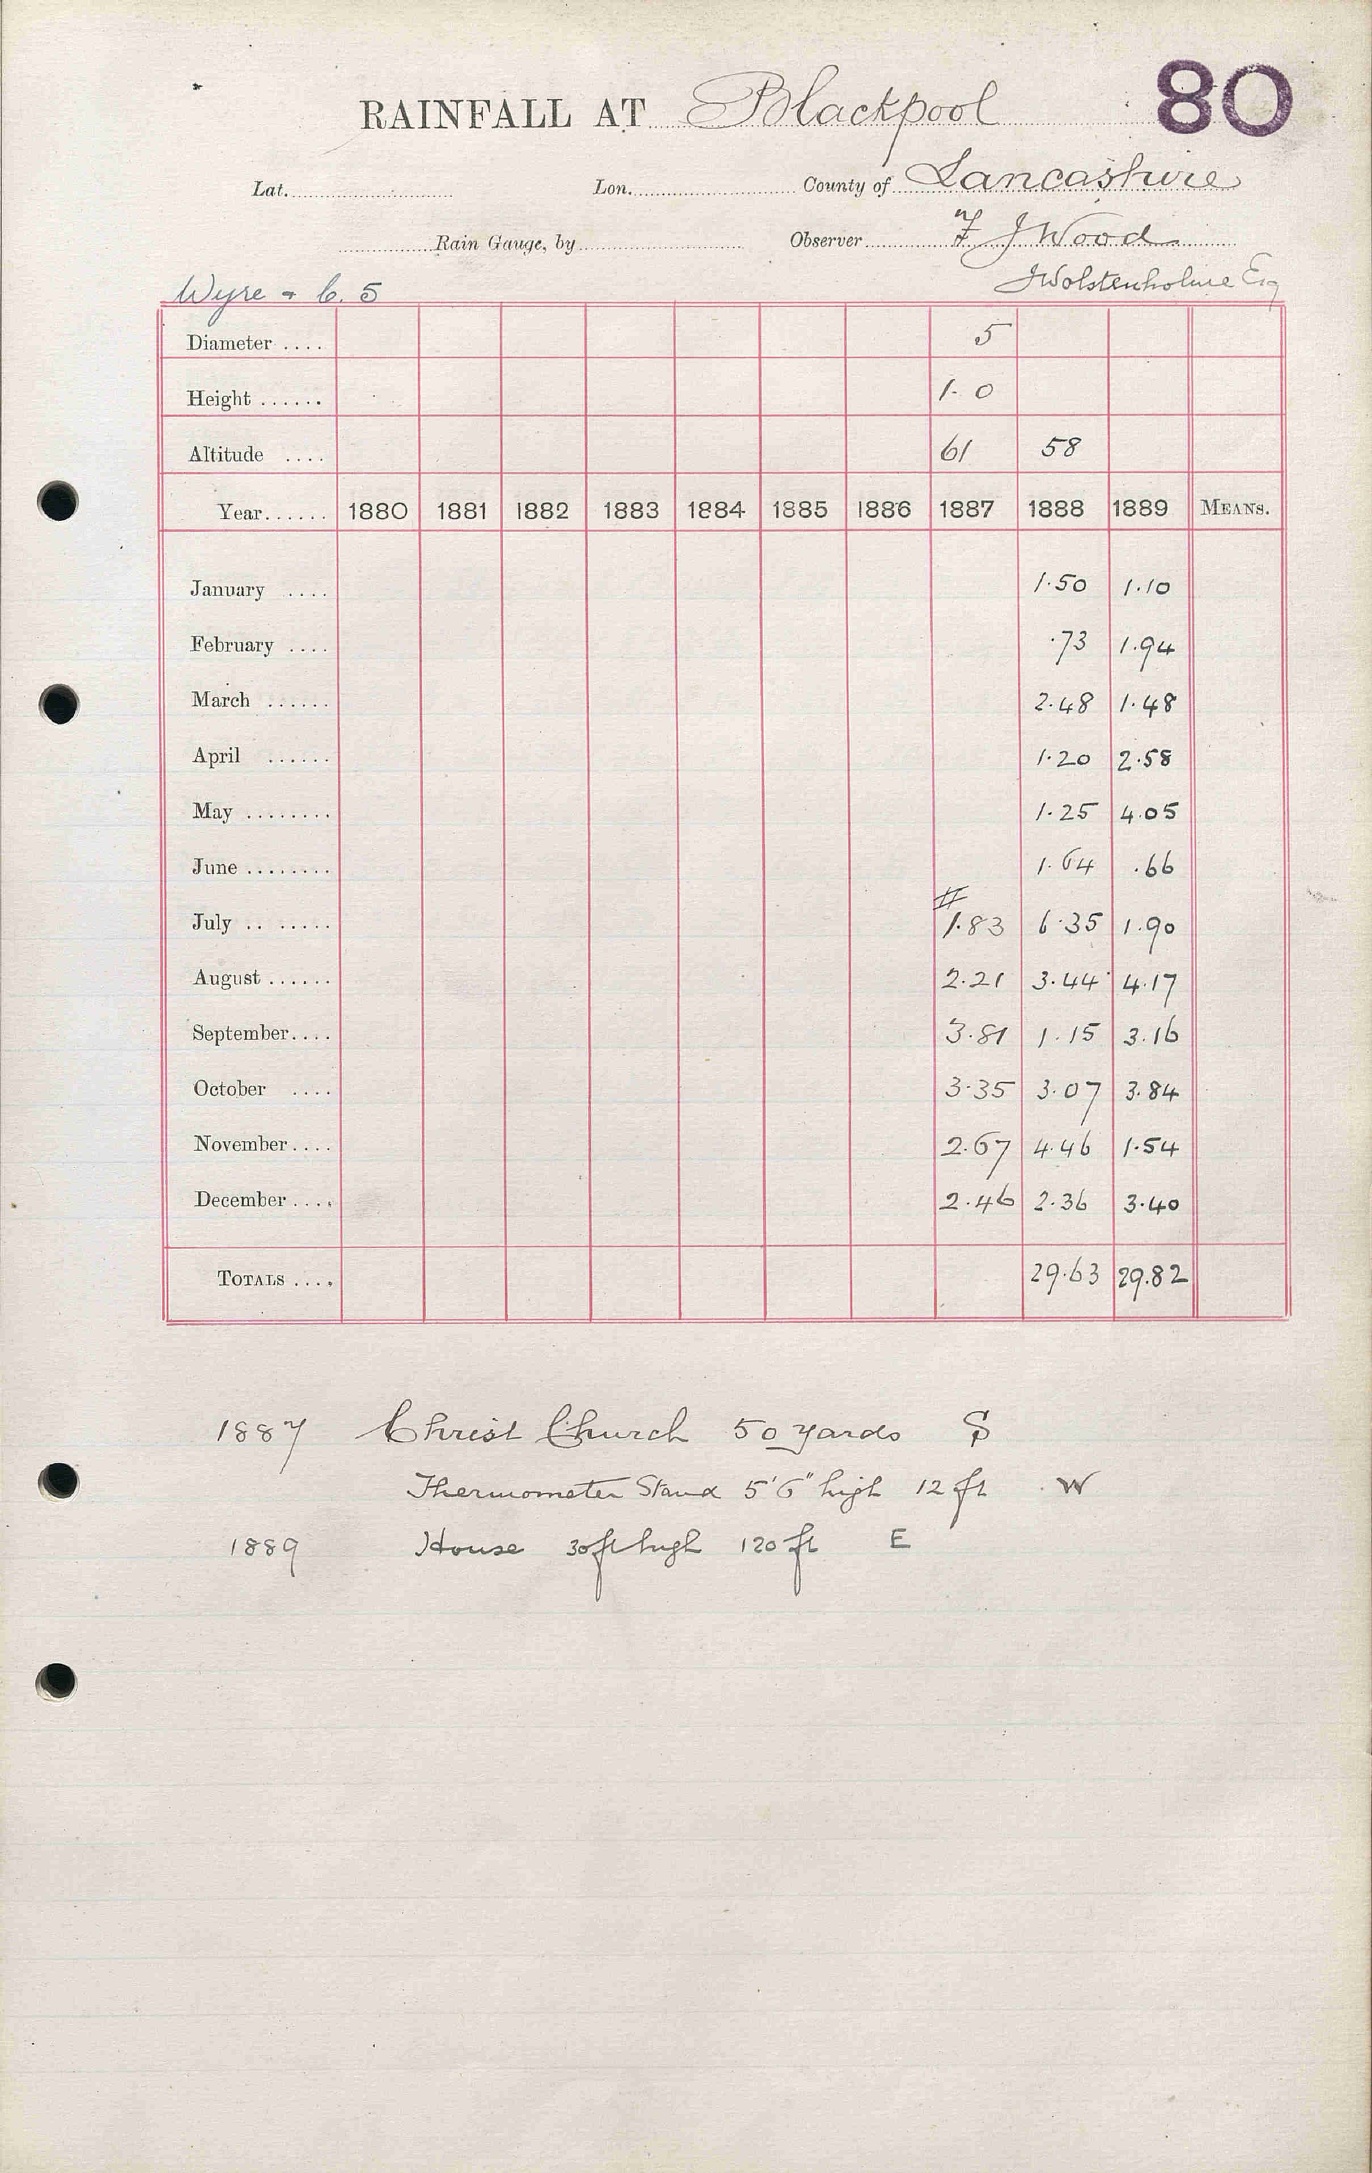 80
RAINFALL AT Blackpool
Lat. Lon. County of Lancashire
Rain Gauge, by Observer F J Wood
J Wolstenholme Esq
Wyre & C. 5
Diameter .... 5
Height ...... 1.0
Altitude .... 61 58
Year...... 1880 1881 1882 1883 1884 1885 1886 1887 1888 1889 MEANS.
January .... 1.50 1.10
February .... .73 1.94
March ...... 2.48 1.48
April ...... 1.20 2.58
May ........ 1.25 4.05
June ........ 1.64 .66
#
July .. ..... 1.83 6.35 1.90
August ...... 2.21 3.44 4.17
September.... 3.81 1.15 3.16
October .... 3.35 3.07 3.84
November.... 2.67 4.46 1.54
December.... 2.46 2.36 3.40
TOTALS .... 29.63 29.82
1887 Christ Church 50 yards S
Thermometer Stand 5'6" high 12 ft W
1889 House 30ft high 120 ft E